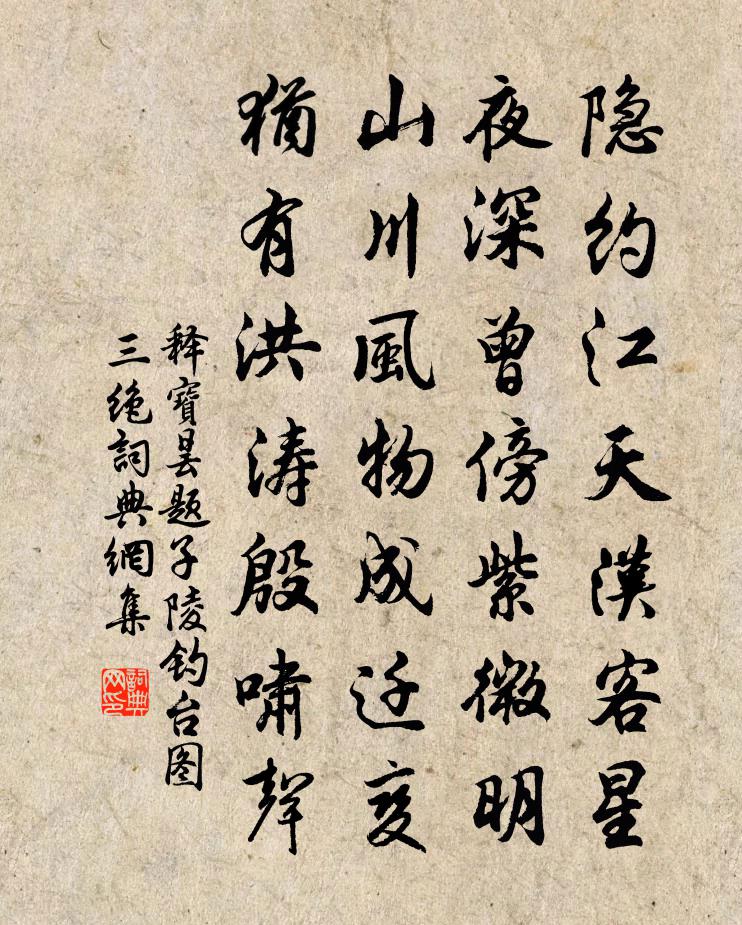 隐约江天汉客星
夜深曾傍紫微明
山川風物成迁变
猶有洪涛殷啸聲
释寶昙题子陵钓台图
三绝詞典網集
詞典网印